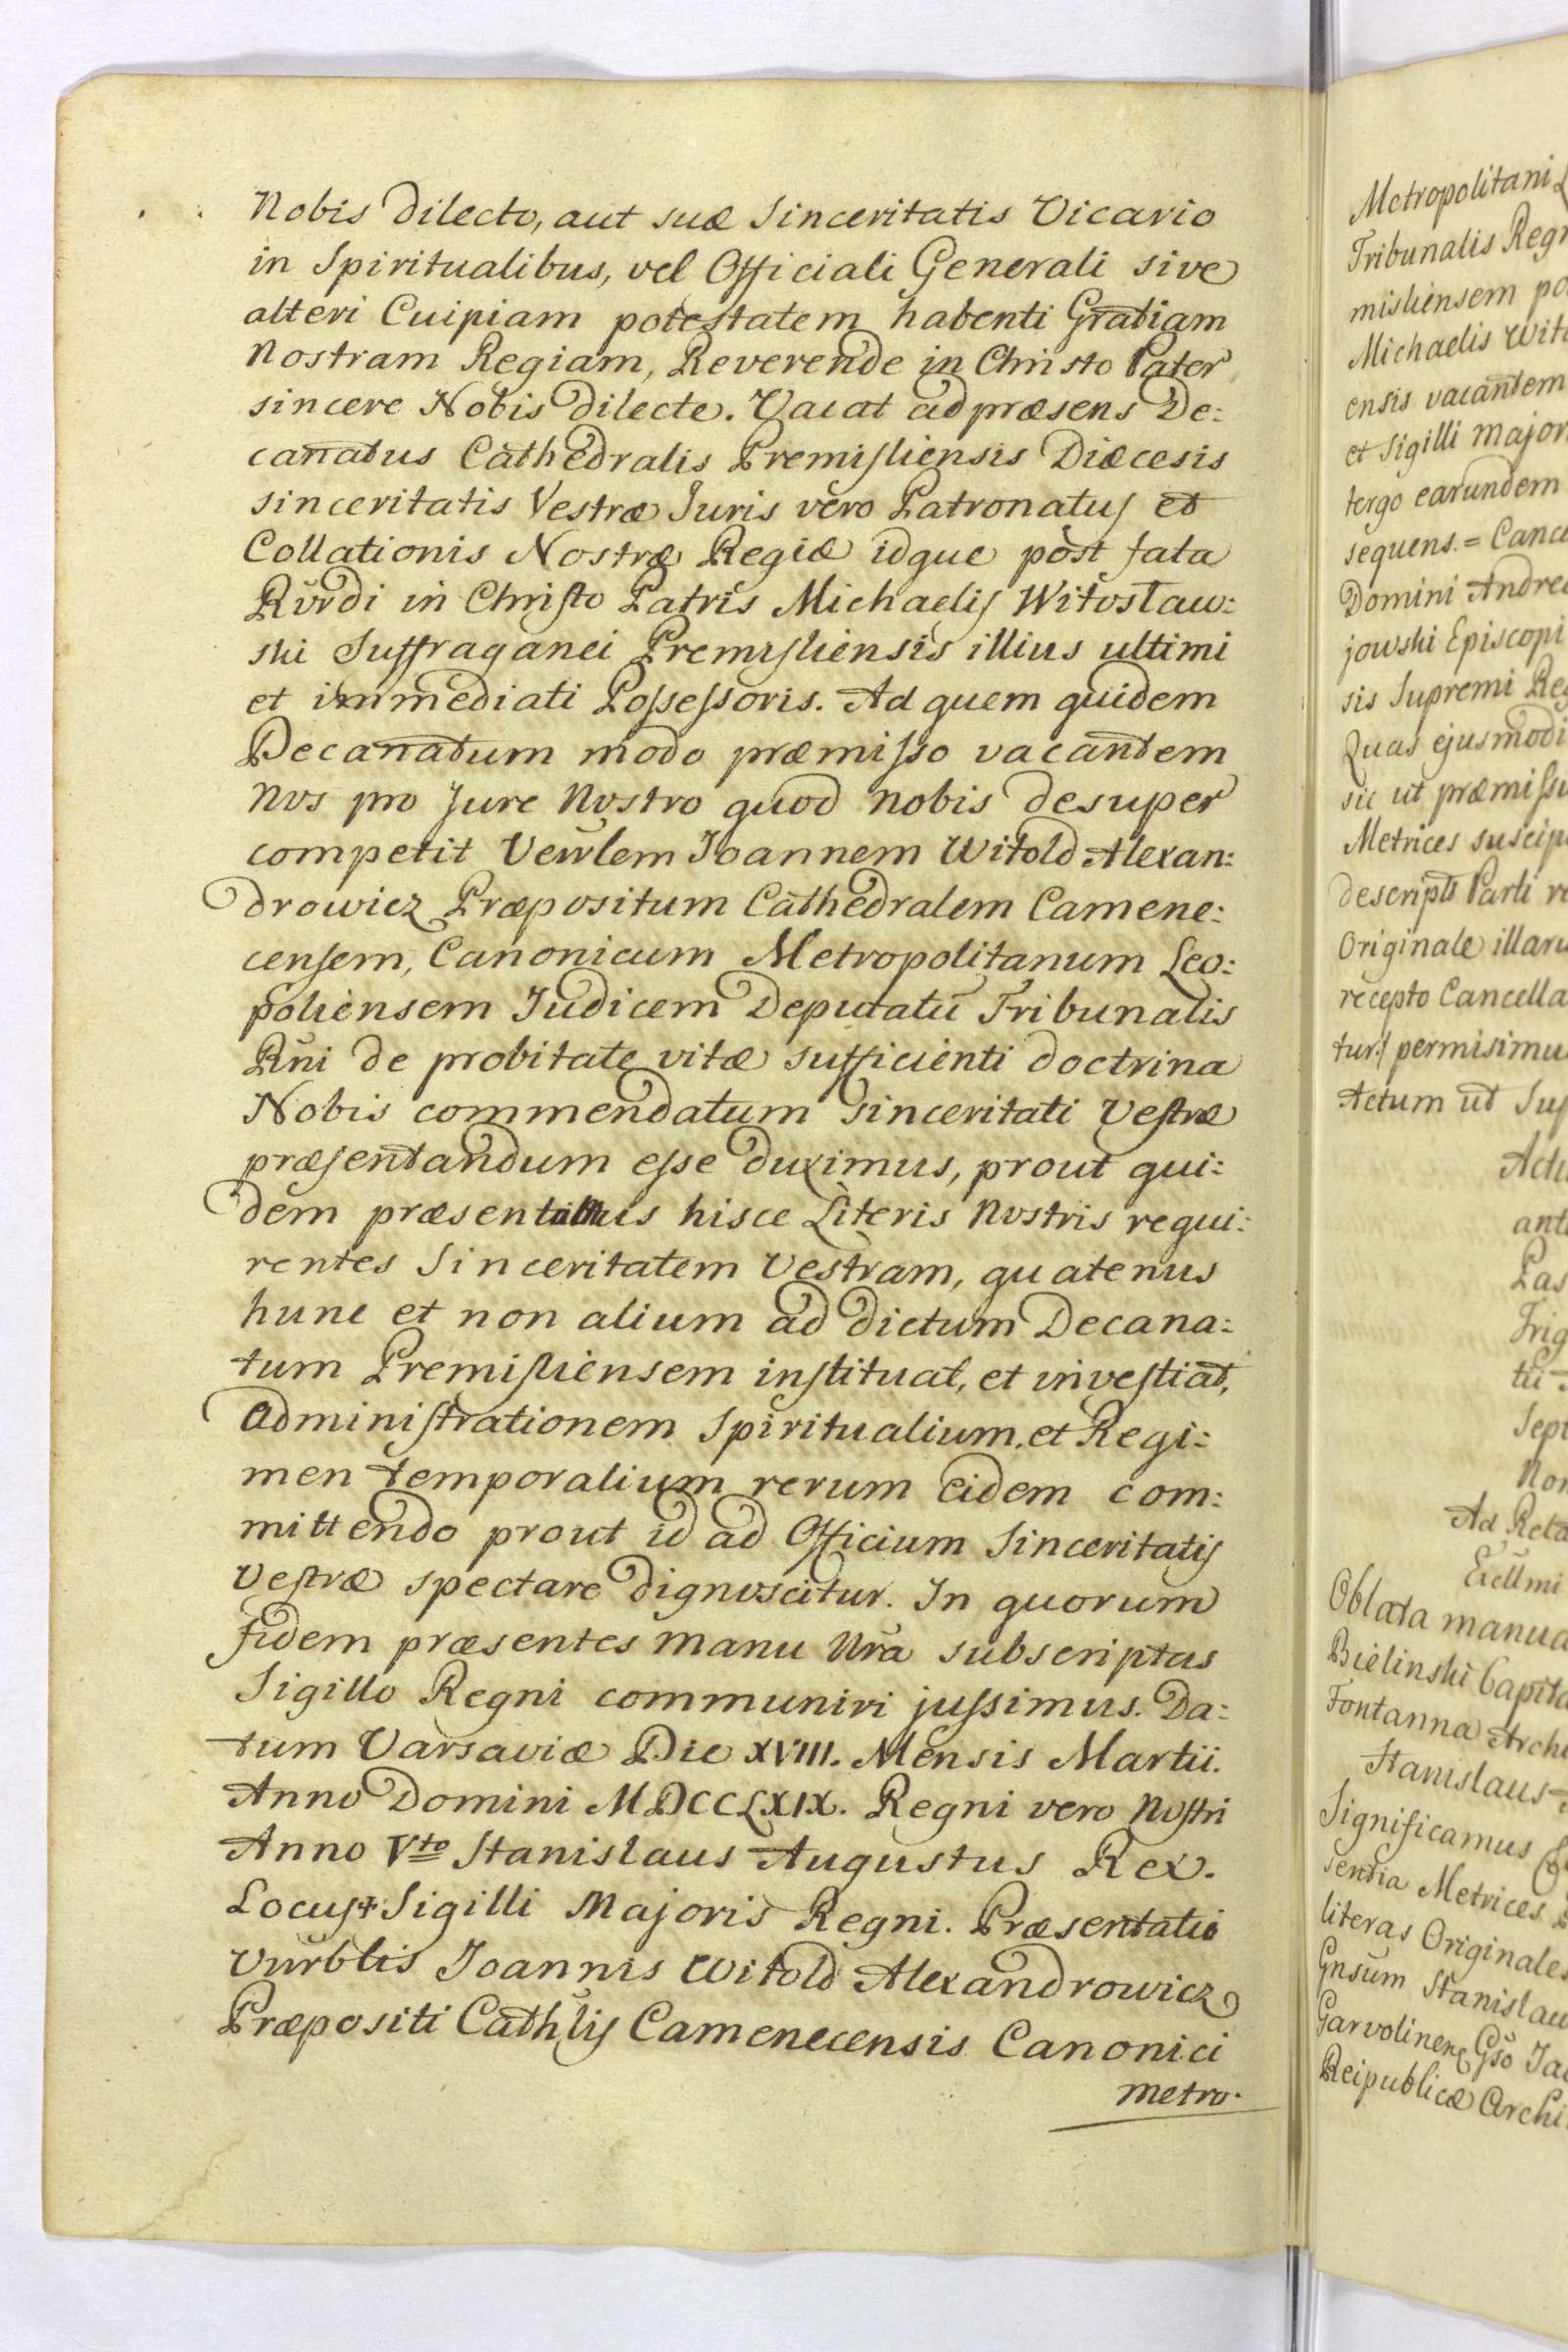 Nobis dilecto, aut suæ Sinceritatis Vicario
in Spiritualibus, vel Officiali Generali sive
alteri Cuipiam potestatem habenti Gratiam
Nostram Regiam, Reverende in Christo Pater
sincere Nobis dilecte. Vacat ad præsens De:
canatus Cathedralis Premisliensis Diæcesis
sinceritatis Vestræ Juris vero Patronatus et
Collationis Nostræ Regiæ idque post fata
Rvrdi in Christo Patris Michaelis Witosław:
ski Suffraganei Premysliensis illius ultimi
et immediati Possessoris. Ad quem quidem
Decanatum modo præmisso vacantem
Nos pro Jure Nostro quod nobis desuper
competit Joannem Witold Alexan:
drowicz Præpositum Cathedralem Camene:
censem, Canonicum Metropolitanum Leo:
poliensem Judicem Deputatū Tribunalis
Rni de probitate vitæ sufficienti doctrina
Nobis commendatum sinceritati Vestræ
præsentandum esse duximus, prout qui:
dem præsentamus hisce Literis Nostris requi:
rentes Sinceritatem Vestram, quatenus
hunc et non alium ad dictum Decana:
tum Premisliensem instituat, et investiat,
administrationem Spiritualium, et Regi:
men temporalium rerum eidem com:
mittendo prout id ad Officium Sinceritatis
Vestræ spectare dignoscitur. In quorum
fidem præsentes manu Nra subscriptas
Sigillo Regni communiri jussimus. Da:
tum Varsaviæ Die XVIII. Mensis Martii.
Anno Domini MDCCLXIX. Regni vero Nostri
Anno Vto Stanislaus Augustus Rex.
Locus + Sigilli Majoris Regni. Præsentatio
Vnrblis Joannis Witold Alexandrowicz
Præpositi Cathlis Camenecensis Canonici
metro.
Metropolitani
Tribunalis Reg
misliensem po
Michaelis Wit
ensis vacantem
et Sigilli major
tergo earundem
sequens. = Cance
Domini Andre
jowski Episcopi
sis Supremi Re
Quas ejusmodi
sic ut præmiss
Metrices suscip
descripti Parti r
Originale illar
recepto Cancella
tur./ permisimu
Actum ut Su
Act
ant
Pas
Frig
tü
Sept
Non
Ad Rela
Oblata manu
Bielinski Capit
Fontanna Arch
Stanislaus
Significamus
sentia Metrices
literas Originale
Gnsum Stanislau
Ja
Reipublicæ Archi